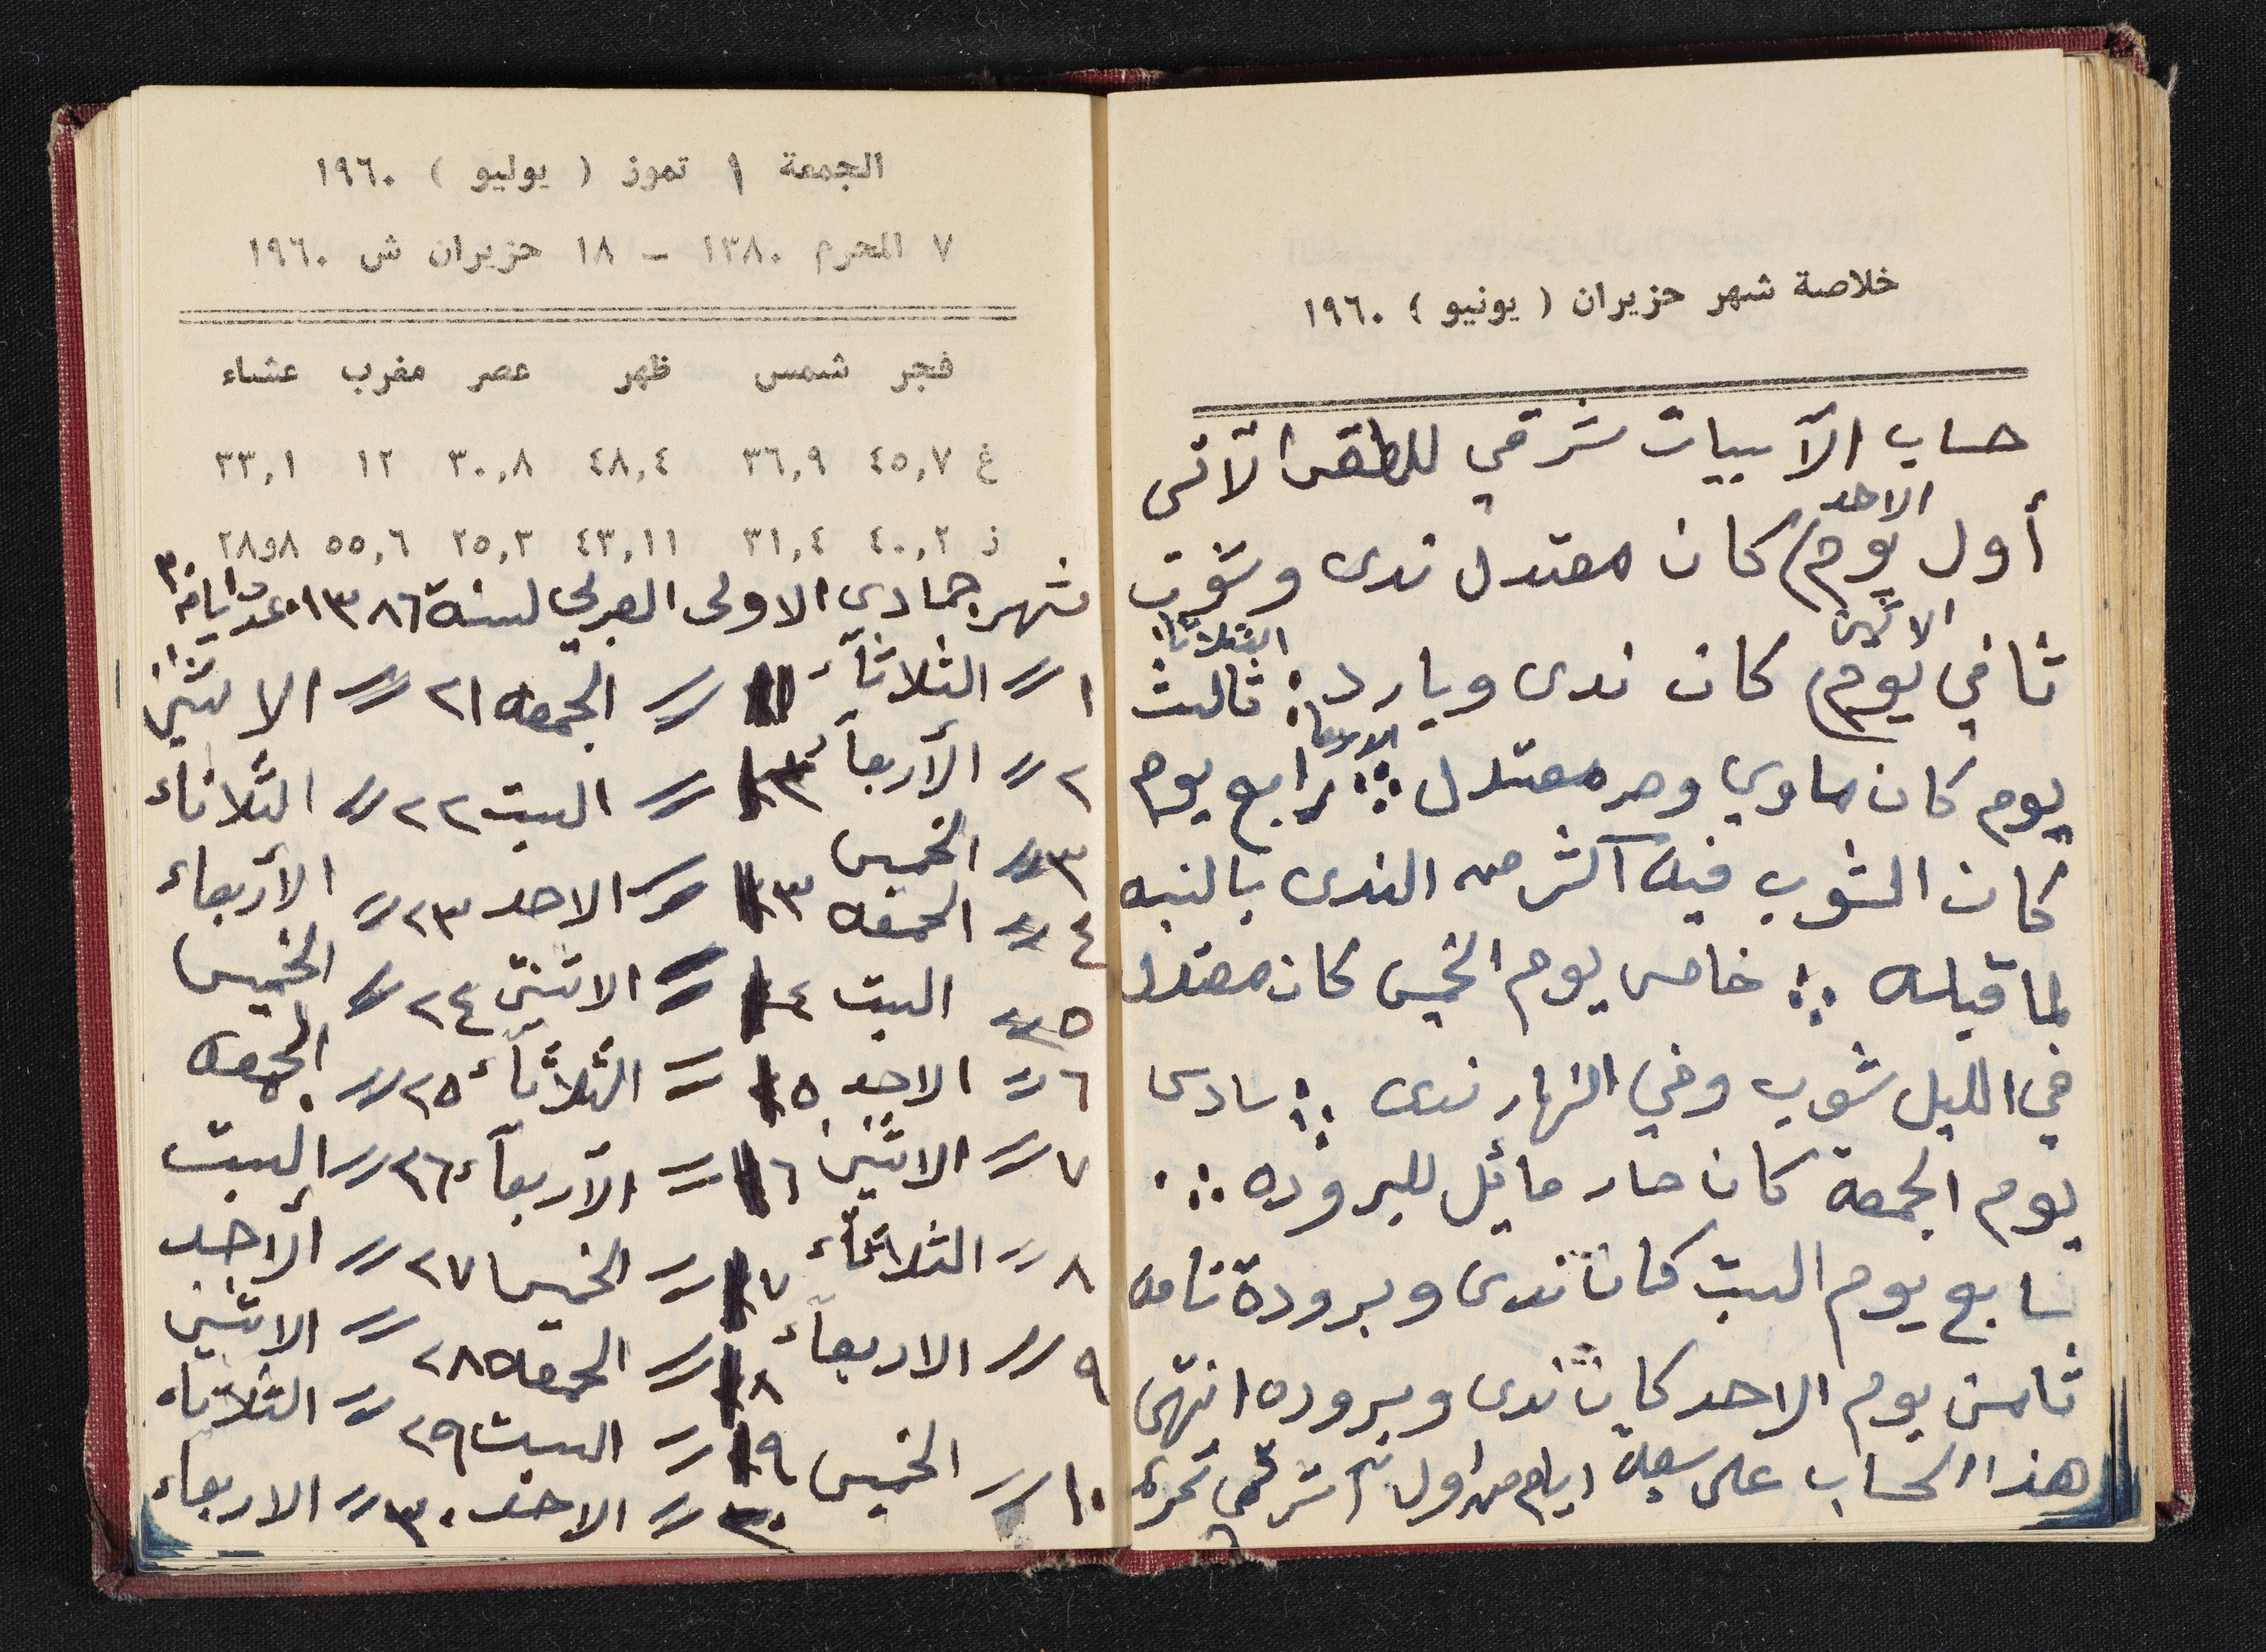 خلاصة شهر حزيران ( يونيو ) ١٩٦٠
حساب الآبيات شرقي للطقس الآتي
أول يوم الاحد كان معتدل ندى وشوب
ثاني يوم الاثنين كان ندى وبارد : ثالث الثلاثا
يوم كان ماوي وحر معتدل رابع يوم الاربعا
كان الشوب فيه آكثر من الندى بالنبه
لما قبله خامس يوم الخميس كان معتدل
في الليل شوب وفي النهار ندى سادس
يوم الجمعة كان حار مائل للبروده
سابع يوم السبت كان ندى وبرودة تامه
ثامن يوم الاحد كان ندى وبروده انتهى
هذا الحساب على ايام من اول
الجمعة ١ تموز ( يوليو ) ١٩٦٠
٧ المحرم ١٣٨٠ – ١٨ حزيران ش ١٩٦٠
فجر شمس ظهر عصر مغرب عشاء
غ ٤٥,٧ ٣٦,٩ ٤٨,٤ ٣٠,٨ ١٢ ٣٣,١
ز ٤٠,٢ ٣١,٤ ٤٣,١١ ٢٥,٣ ٥٥,٦ ٢٨و٨
شهر جمادى الاولى العربي لسنة ١٣٨٦ عدد ايامه ٣٠
١ // الثلاثآء ١١ // الجمعه ٢١ // الاثنين
٢ // الأربعآء // السبت ٢٢ // الثلاثاء
٣ // الخميس ١٣ // الاحد ٢٣ // الأربعاء
٤ // الجمعه ١٤ // الاثنين ٢٤ // الخميس
٥ // السبت ١٥ // الثلاثآء ٢٥ // الجمعه
٦ // الاحد ١٦ // الآربعآء ٢٦ // السبت
٧ // الاثنين ١٧ // الخميس ٢٧ // الأحد
٨ // الثلاثآء ١٨ // الجمعه ٢٨ // الاثنين
٩ // الاربعآء ١٩ // السبت ٢٩ // الثلاثاء
١٠ // الخميس ٢٠ // الاحد ٣٠ // الاربعاء